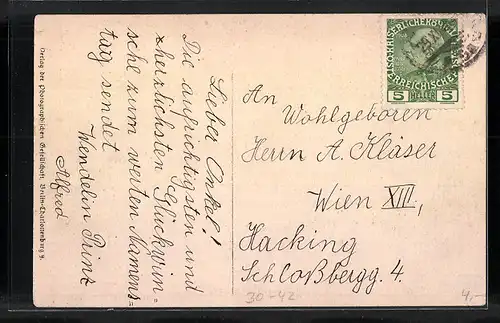 Verlag der Photographischen Gesellschaft, Berlin-Charlottenburg 9.
Lieber Onkel!
Die aufrichtigsten und
herzlichsten Glückwün-
sche zum werten Namens=
tag sendet
Wendelin Prinz
Alfred
5 HELLER 5
An
Wohlgeboren
Herrn A. Kläser
Wien XIII,
Hacking
Schloßbergg. 4.
30-42
4,-